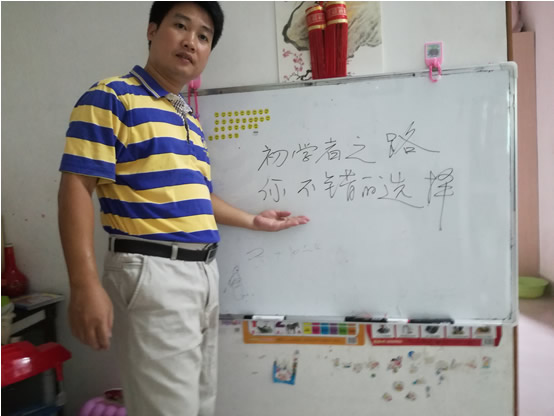 初学者之路
你不错的选择